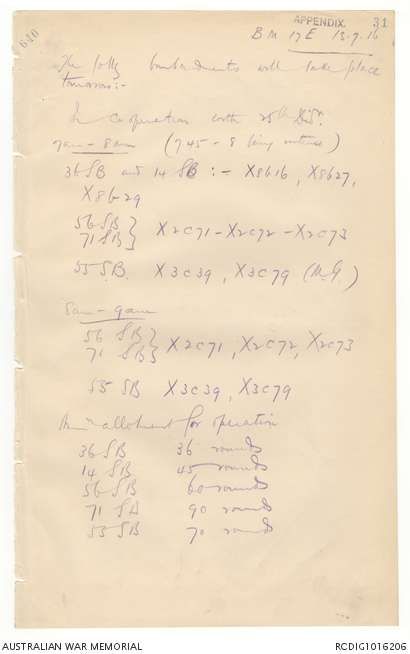 APPENDIX. 31
640
BM 17E 13.9.16
The follg bombardments will take place
tomorrow:-
In cooperation with 25th Divn.
7am - 8am (745 - 8 being intense)
36 SB and 14 SB :- X8b16, X8b27,
X8b29
56 SB }
71 SB } X2c71 - X2c72 - X2c73
55 S.B. X3c39, X3c79 (M.G.)
8am - 9am
56 SB }
71 SB } X2c71, X2c72, X2c73
55 SB X3c39, X3c79
allotment for operation
36 SB 36 rounds
14 SB 45 rounds
56 SB 60 rounds
71 SB 90 rounds
55 SB 70 rounds
AUSTRALIAN WAR MEMORIAL RCDIG1016206